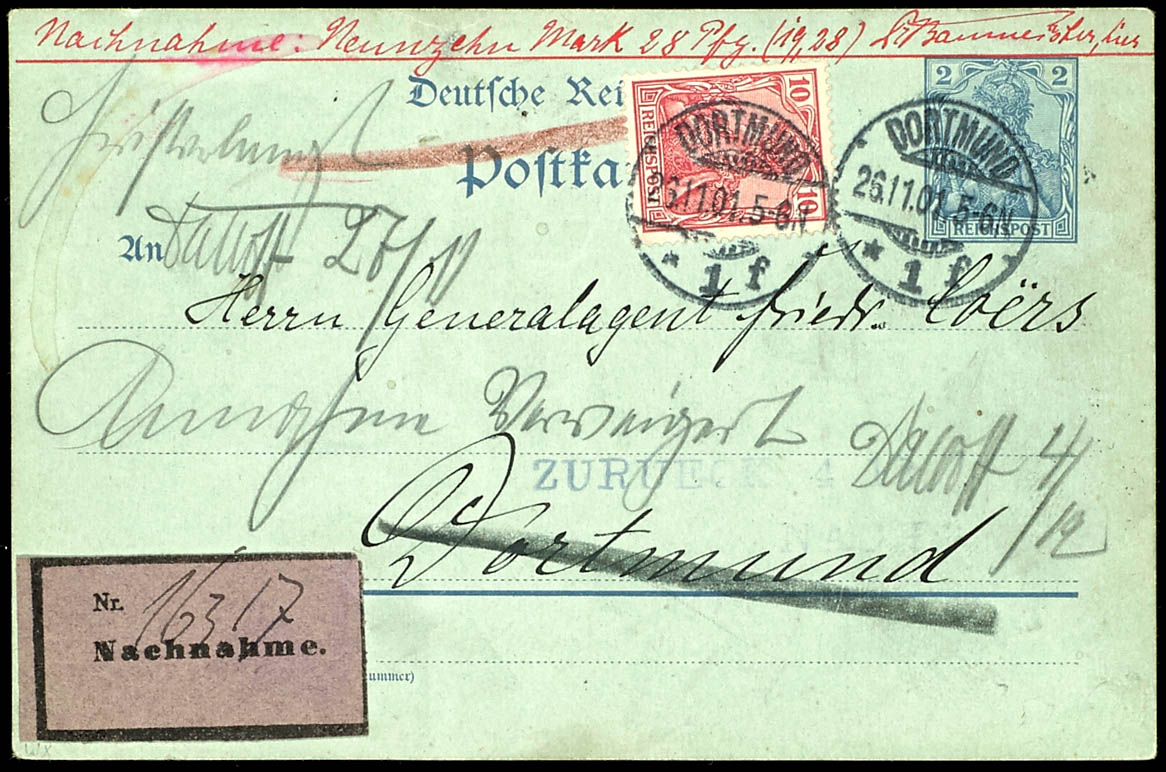 Nachnahme: Neunzehn Mark 28 Pfg. (19,28) Baumeister, hier
Deutsche Rei
Postka
10
10
REICHSPOST
2 2
REICHSPOST
DORTMUND
26.11.01. 5-6N
* 1 f
DORTMUND
26.11.01. 5-6N
* 1 f
An
27/11
Herrn Generalagent Friedr. Coërs
Annahme Verweigert 4/12
ZURUECK
Dortmund
Nr. 16317
Nachnahme.
ummer)
WX